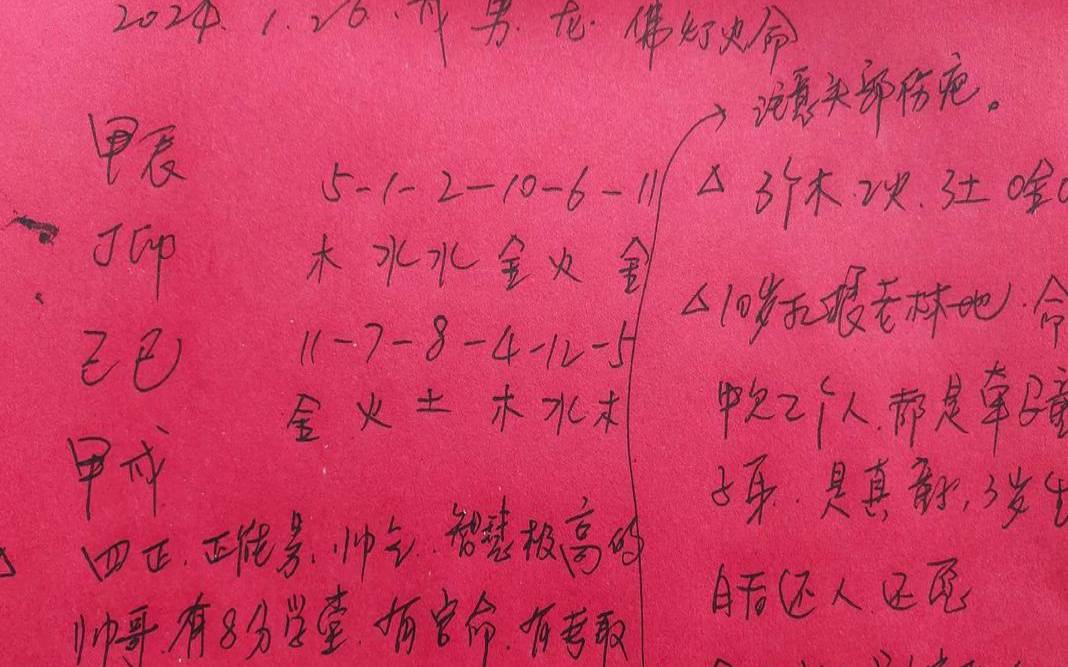 2024.1.26.戌 男.龙.佛灯火命
甲辰
丁卯
己巳
甲戌
5-1-2-10-6-11
木 水 水 金 火 金
11-7-8-4-12-5
金 火 土 木 水 木
四正.正能量.帅气.智慧极高的
帅哥.有8分学堂.有官命.有考取
注意头部伤疤。
△ 3个木.2火.3土 0金0
△10岁 老林地.命
中欠2个人.都是牵
是真 3岁
自 还人.还愿